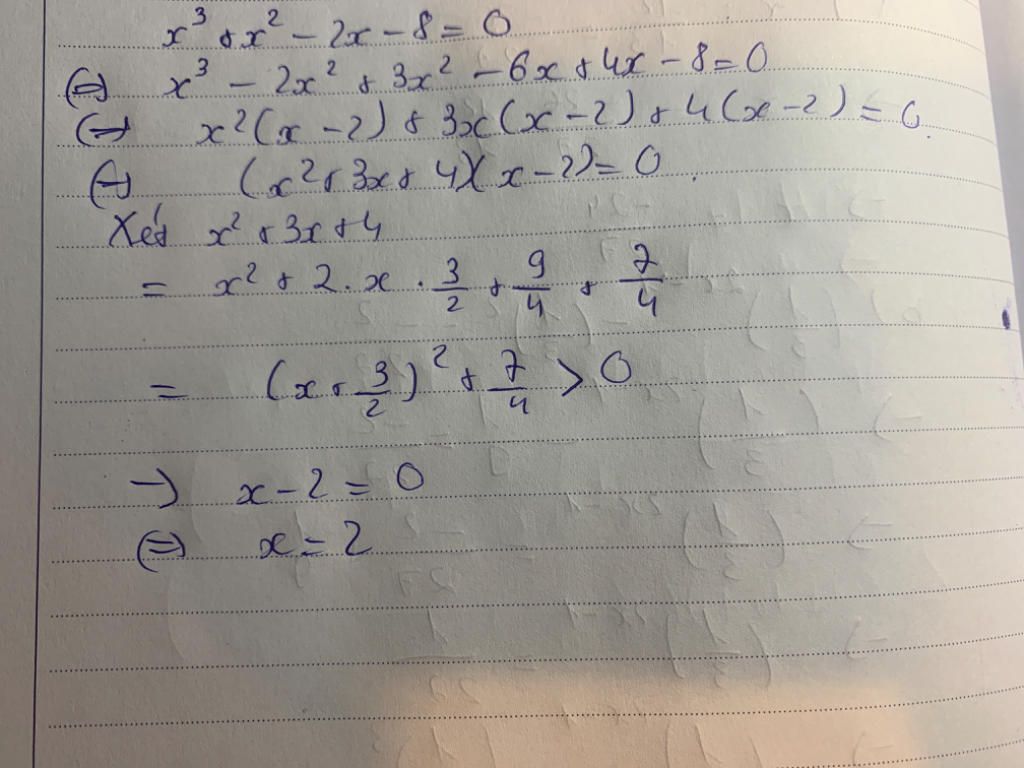 x³ + x² - 2x - 8 = 0
⇔ x³ - 2x² + 3x² - 6x + 4x - 8 = 0
⇔ x²(x - 2) + 3x(x - 2) + 4(x - 2) = 0.
⇔ (x² + 3x + 4)(x - 2) = 0.
Xét x² + 3x + 4
= x² + 2.x.3/2 + 9/4 + 7/4
= (x + 3/2)² + 7/4 > 0
→ x - 2 = 0
⇔ x = 2